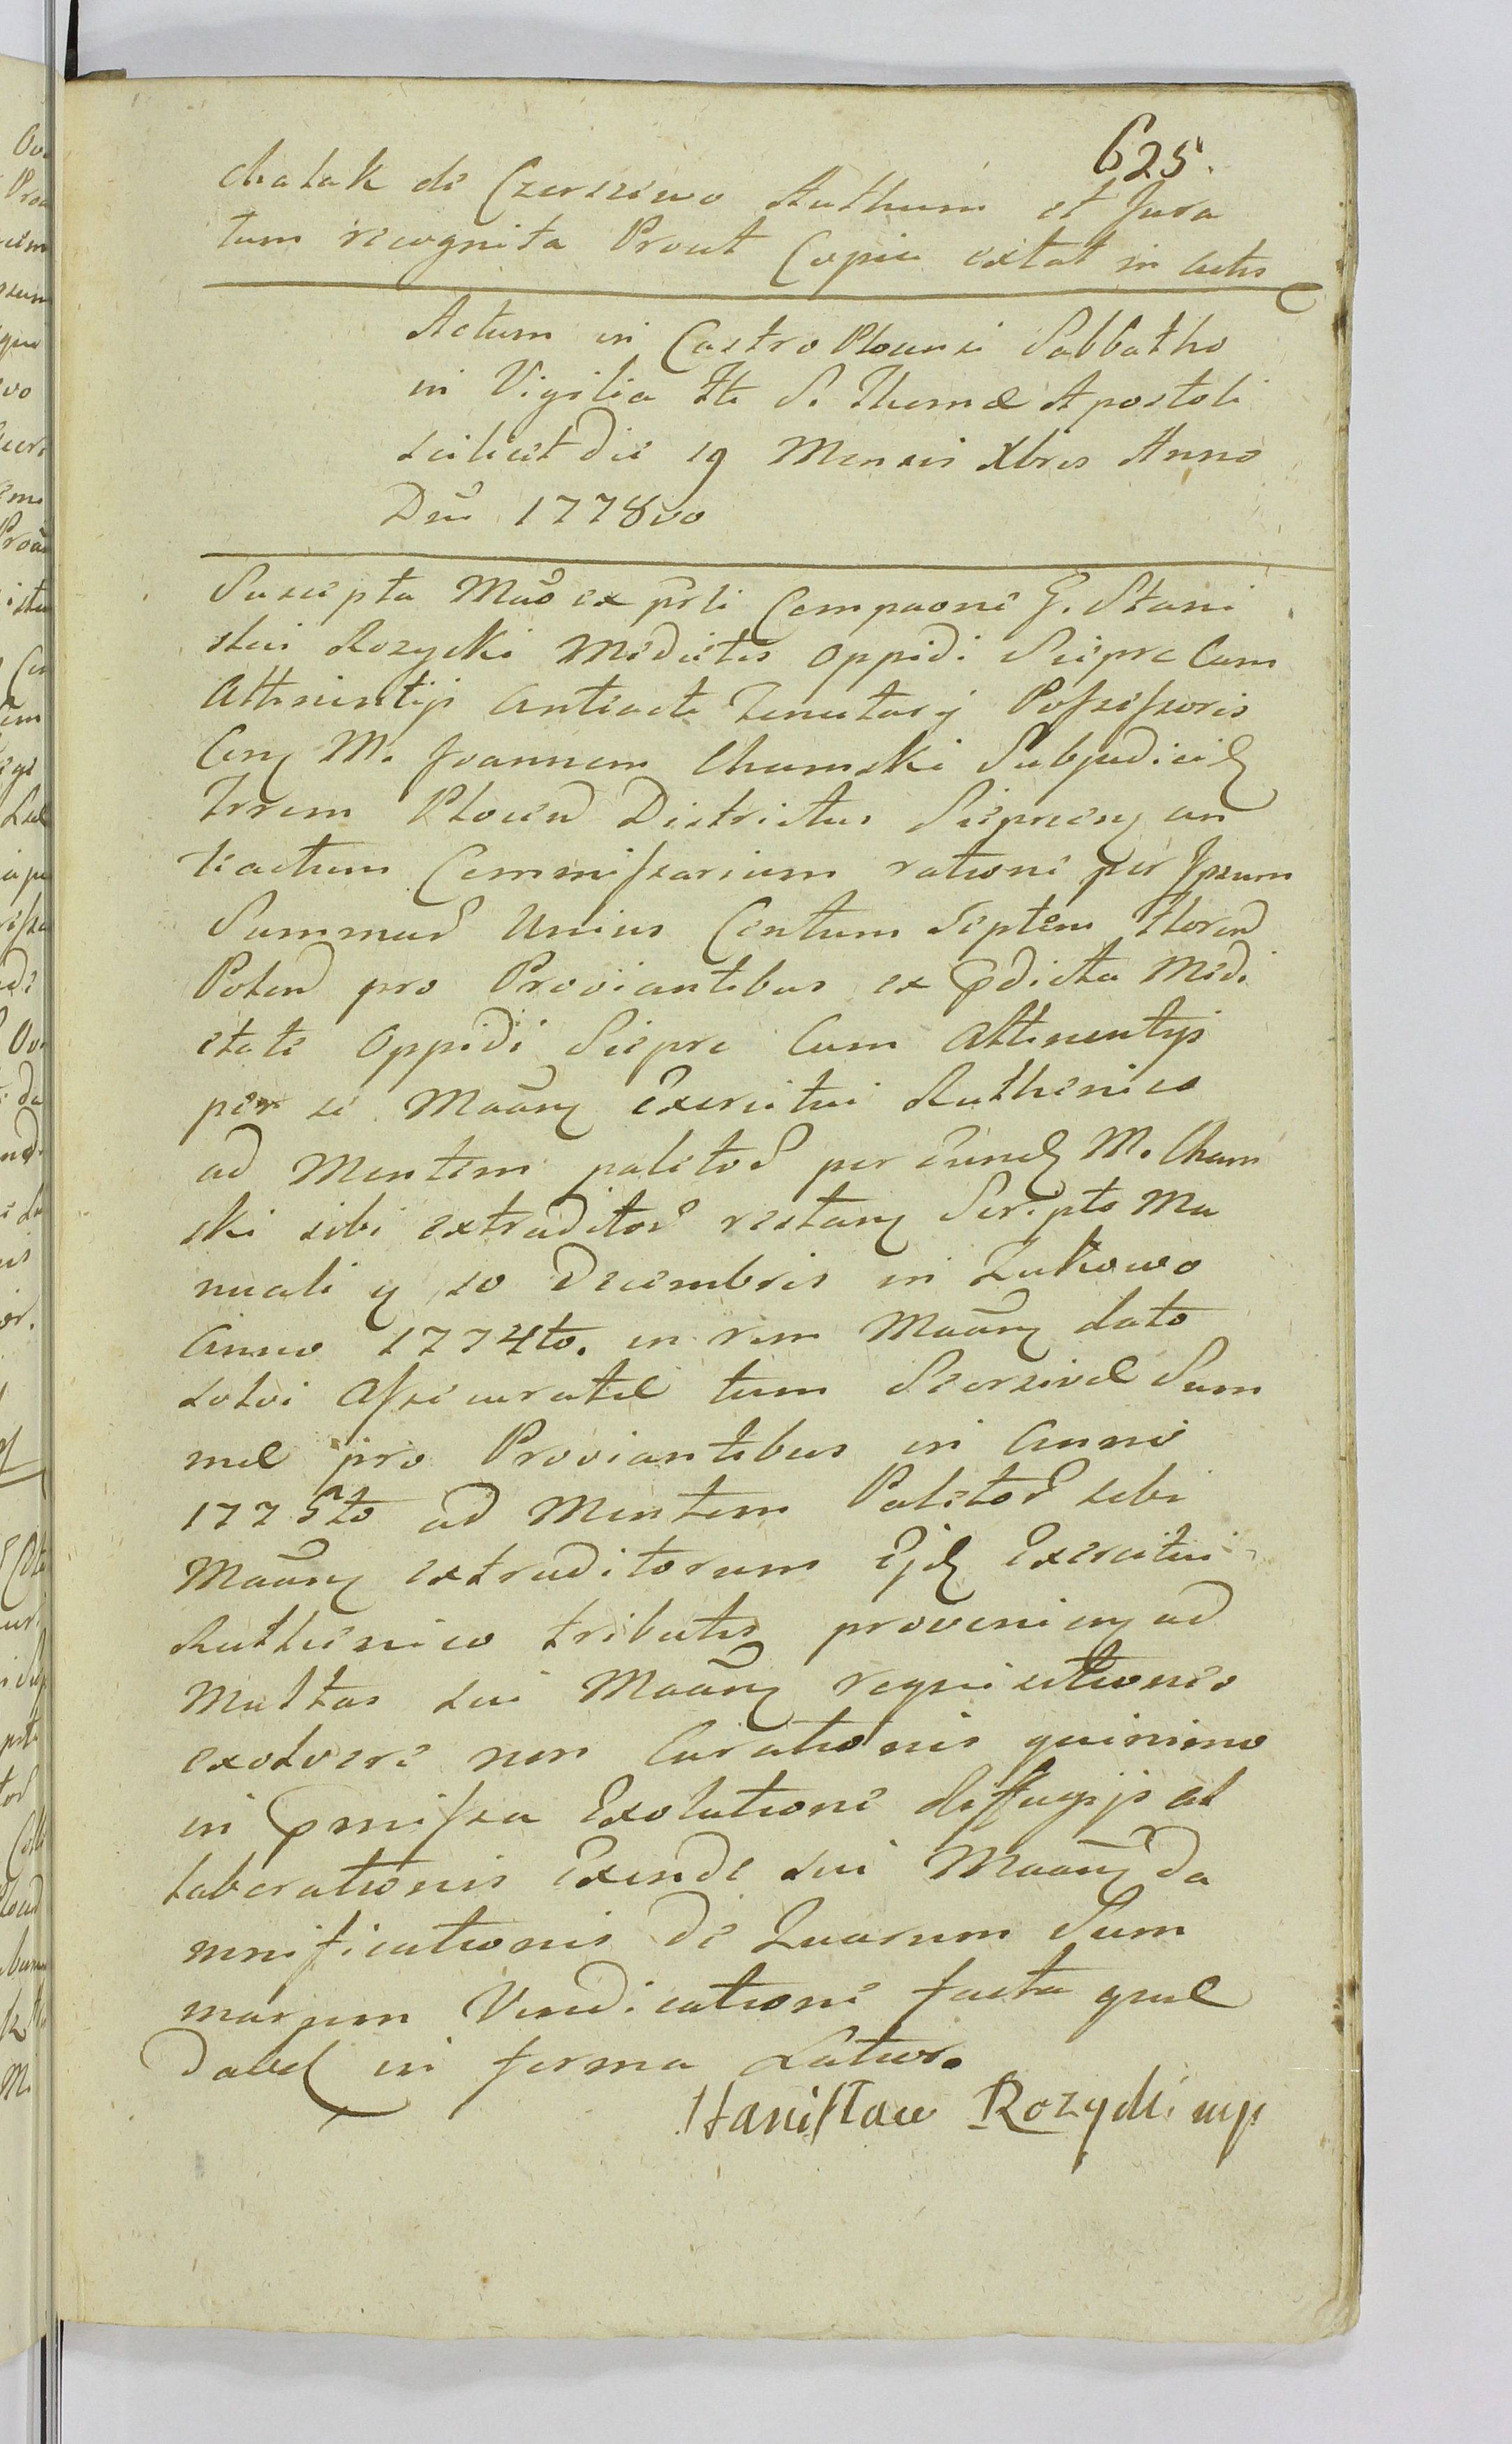 625.
chatak de Czerniewo Authum et Jura
tum recognita Prout Copia extat in actis
Actum in Castro Plocensi Sabbatho
in Vigilia Fti S. Thomæ Apostoli
scilicet die 19 Mensis Xbris Anno
Dni 1778vo
Suscepta Mão ex prli Compaone G. Stani
slai Rozycki Medietis oppidi Sieprc Cum
Attinentijs antiacte Tenutarij Possessoris
Cong M. Joannem Chamski Subjudicem
Trrem Plocen Districtus Sieprcens an
tiactum Commissarium ratione per Ipsum
Summar Unius Centum Septem floren
Polon pro Proviantibus ex prdicta Medi
etate Oppidi Sieprc Cum Attinentijs
per se Maãng Exercitui Ruthenico
ad Mentem paletos per Eund M. Cham
ski sibi extraditos restang Scripto Ma
nuali g 10 Decembris in Zukowo
Anno 1774to. in rem Maãng dato
solvi Assecuratæ tum Seorsivæ Sum
mæ pro Proviantibus in Anno
1775to ad Mentem Paletos sibi
Maãng extraditorum Ejd Exercitui
Ruthenico tributis provenieng ad
Multas sui Maãng requisitiones
exolvere non Curationis quinimo
in prmissa Exolutione diffugijs al
laborationis Exinde sui Maãng da
mnificationis de Quarum Sum
marum Vendicatione facta quæ
Dabd in forma Latior.
Stanisław Rozycki mp